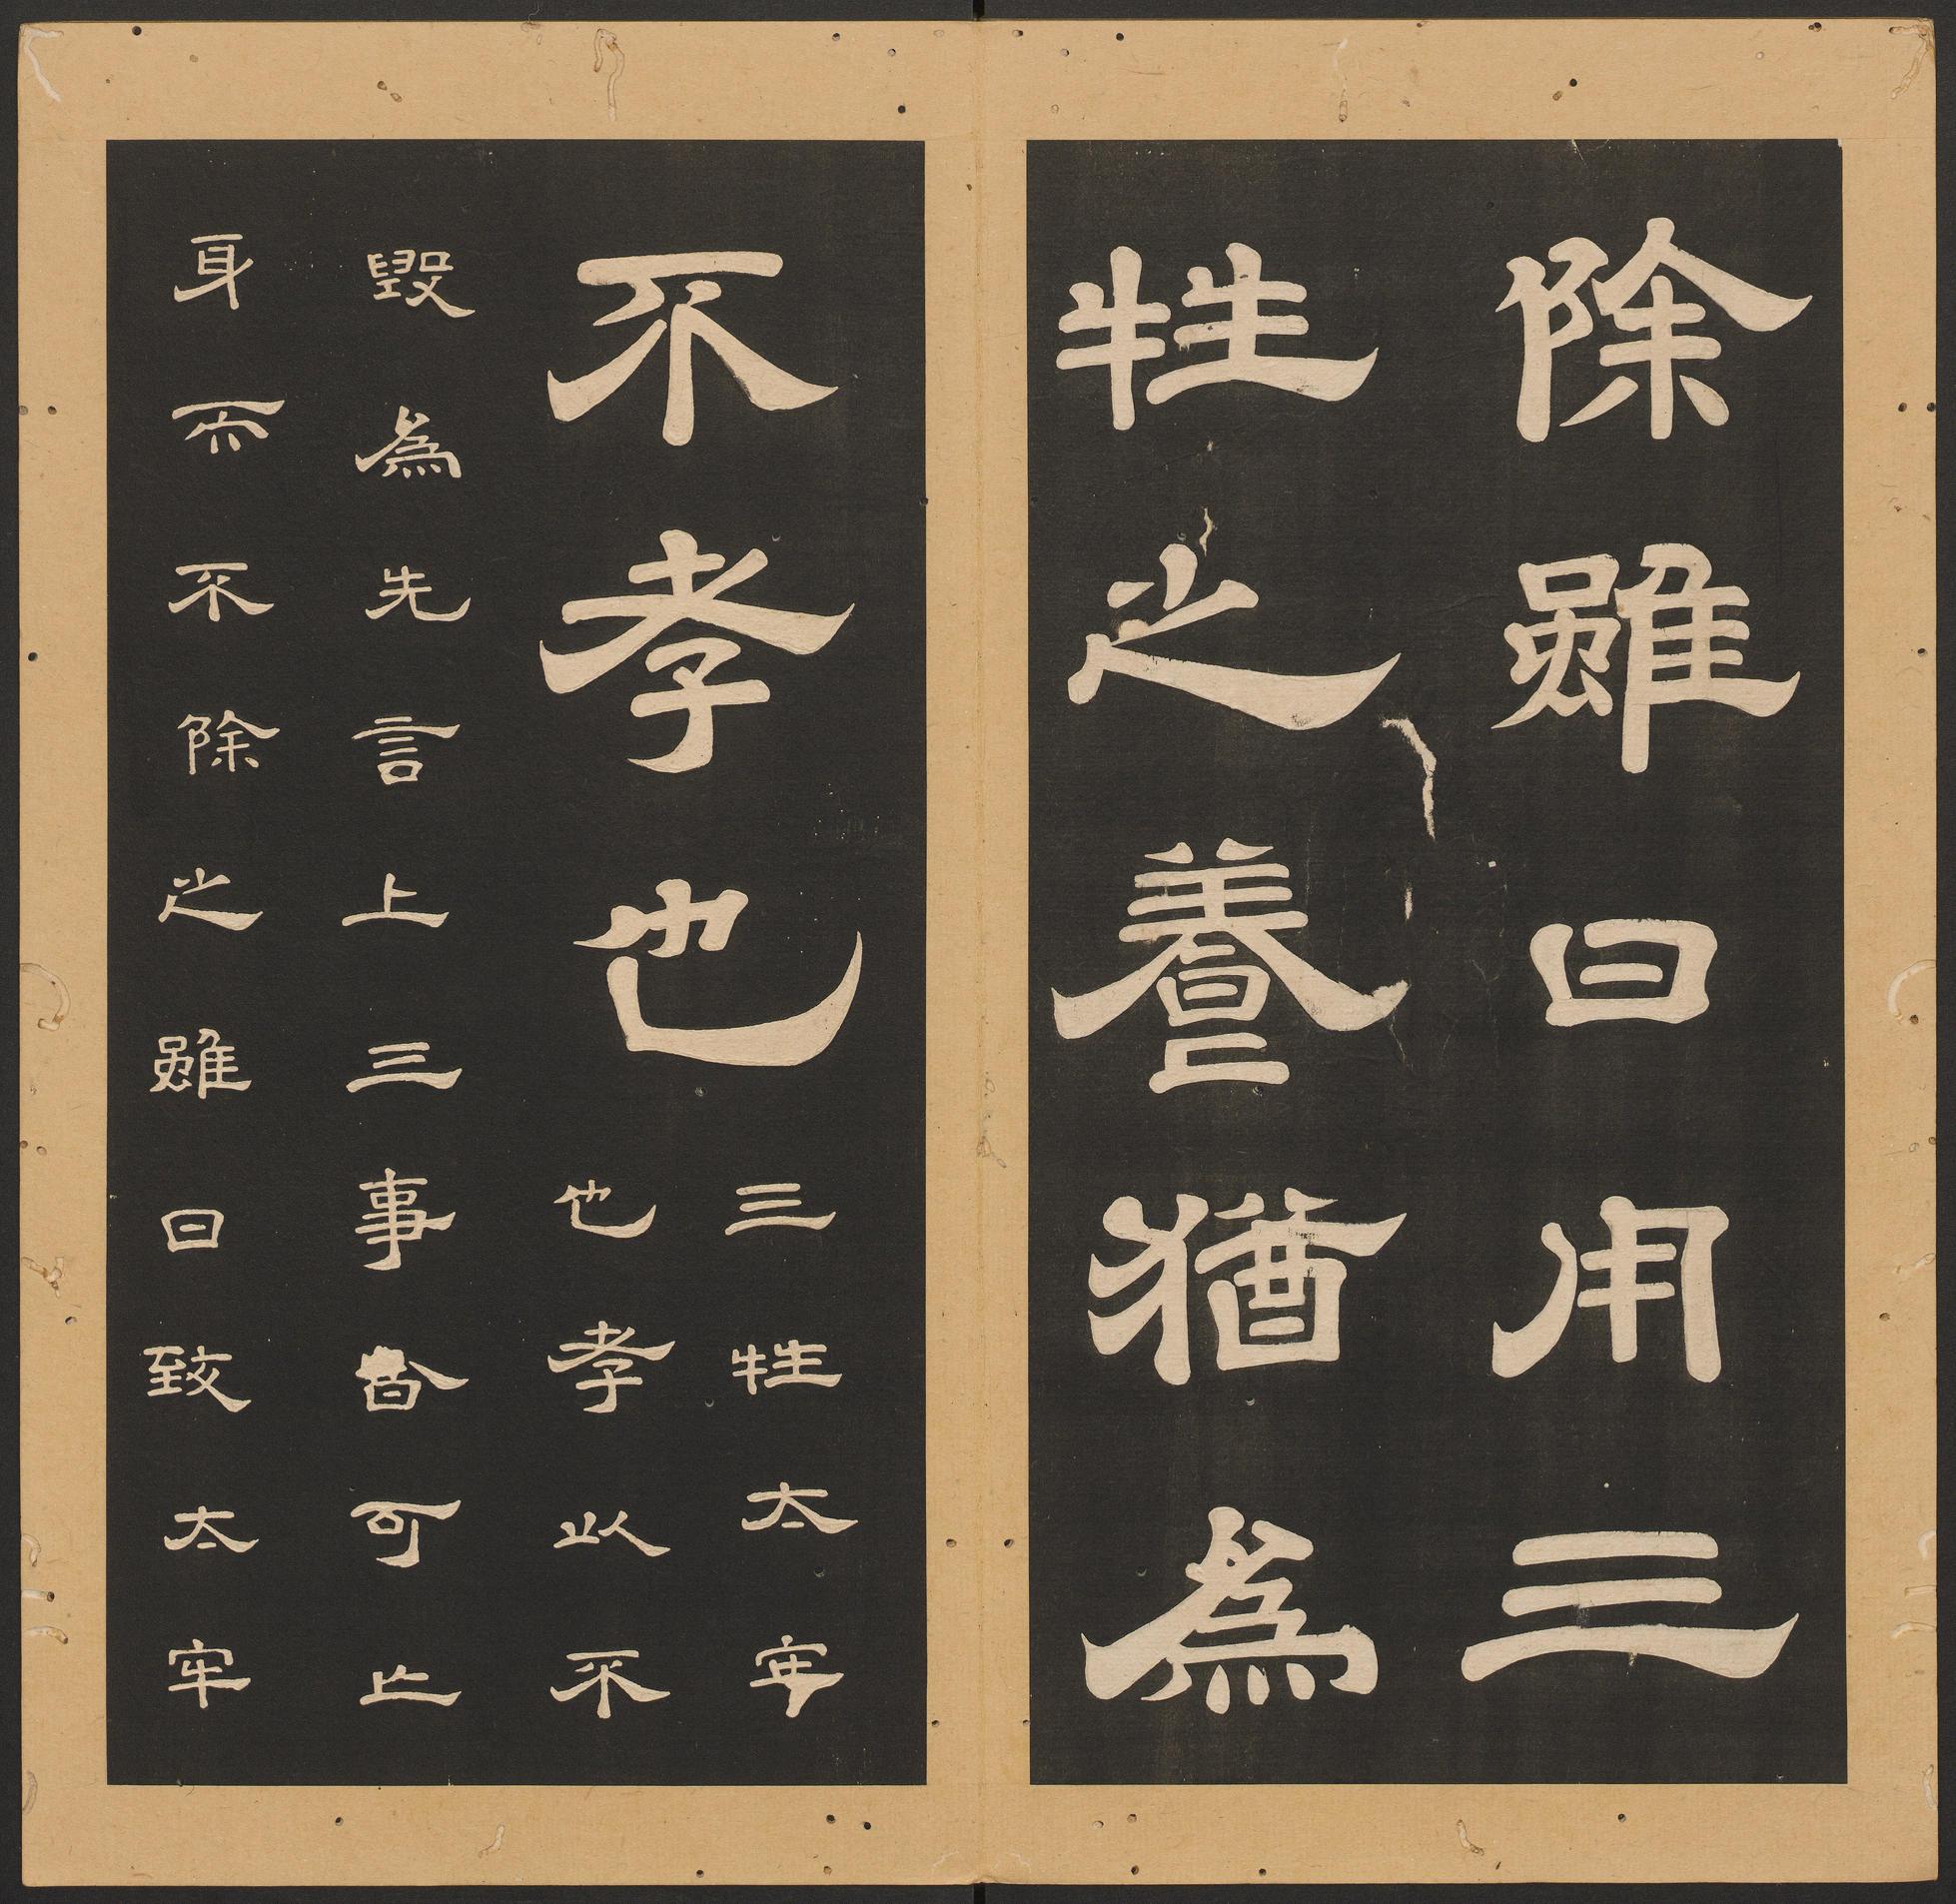 除雖日用三
牲之養猶為
不孝也
三牲太牢
也孝以不
毀為先言上三事皆可亡
身而不除之雖日致太牢